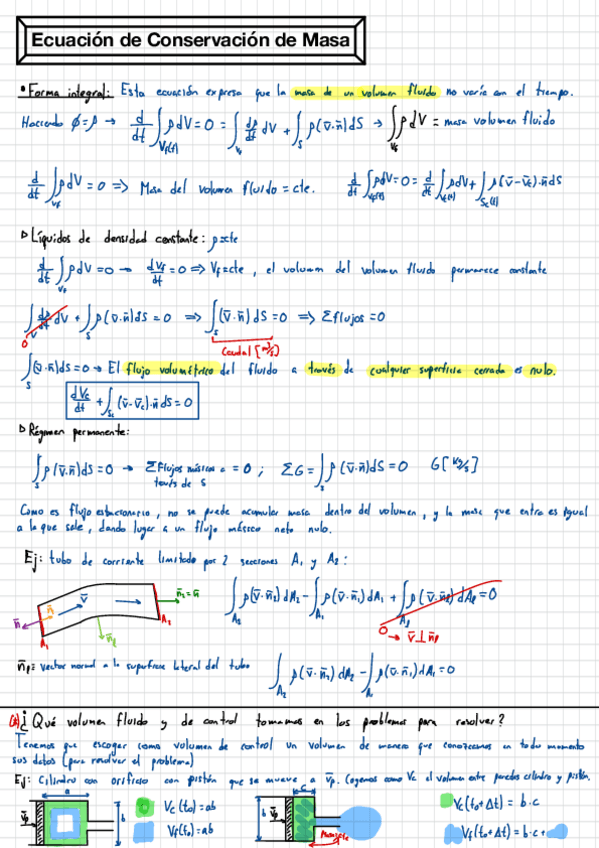 Ecuación de Conservación de Masa
• Forma integral: Esta ecuación expresa que la masa de un volumen fluido no varía con el tiempo.
Haciendo ϕ=ρ → d/dt ∫_{Vf(t)} ρdV = 0 = ∫_{Vf} dρ/dt dV + ∫_S ρ(v̄·n̄)dS → ∫_{Vf} ρdV = masa volumen fluido
d/dt ∫_{Vf} ρdV = 0 => Masa del volumen fluido = cte. d/dt ∫_{Vf(t)} ρdV = 0 = d/dt ∫_{Vc(t)} ρdV + ∫_{Sc(t)} ρ(v̄-v̄c)·n̄dS
▷ Líquidos de densidad constante: ρ=cte
d/dt ∫_{Vf} ρdV = 0 → dVf/dt = 0 => Vf=cte, el volumen del volumen fluido permanece constante
∫_V dρ/dt dV + ∫_S ρ(v̄·n̄)dS = 0 => ∫_S (v̄·n̄)dS = 0 => Σflujos = 0
0
Caudal [m³/s]
∫_S (v̄·n̄)dS = 0 → El flujo volumétrico del fluido a través de cualquier superficie cerrada es nulo.
dVc/dt + ∫_{Sc} (v̄-v̄c)·n̄ dS = 0
▷ Régimen permanente:
∫_S ρ(v̄·n̄)dS = 0 → Σflujos másicos a = 0 ; ΣG = ∫_S ρ(v̄·n̄)dS = 0 G[kg/s]
través de S
Como es flujo estacionario, no se puede acumular masa dentro del volumen, y la masa que entra es igual
a la que sale, dando lugar a un flujo másico neto nulo.
Ej: tubo de corriente limitado por 2 secciones A₁ y A₂:
n̄ n̄₁ v̄ n̄₂=n̄ A₁ A₂ n̄ℓ
∫_{A₂} ρ(v̄·n̄₂)dA₂ - ∫_{A₁} ρ(v̄·n̄₁)dA₁ + ∫_{Aℓ} ρ(v̄·n̄ℓ)dAℓ = 0
0 → v̄⊥n̄ℓ
n̄ℓ= vector normal a la superficie lateral del tubo ∫_{A₂} ρ(v̄·n̄₂)dA₂ - ∫_{A₁} ρ(v̄·n̄₁)dA₁ = 0
(*) ¿Qué volumen fluido y de control tomamos en los problemas para resolver?
Tenemos que escoger como volumen de control un volumen de manera que conozcamos en todo momento
sus datos (para resolver el problema)
Ej: Cilindro con orificio con pistón que se mueve a v̄p. Cogemos como Vc el volumen entre paredes cilindro y pistón.
a v̄p b
Vc(t₀) = ab
Vf(t₀) = ab
c b v̄p
Vc(t₀+Δt) = b·c
Vf(t₀+Δt) = b·c+